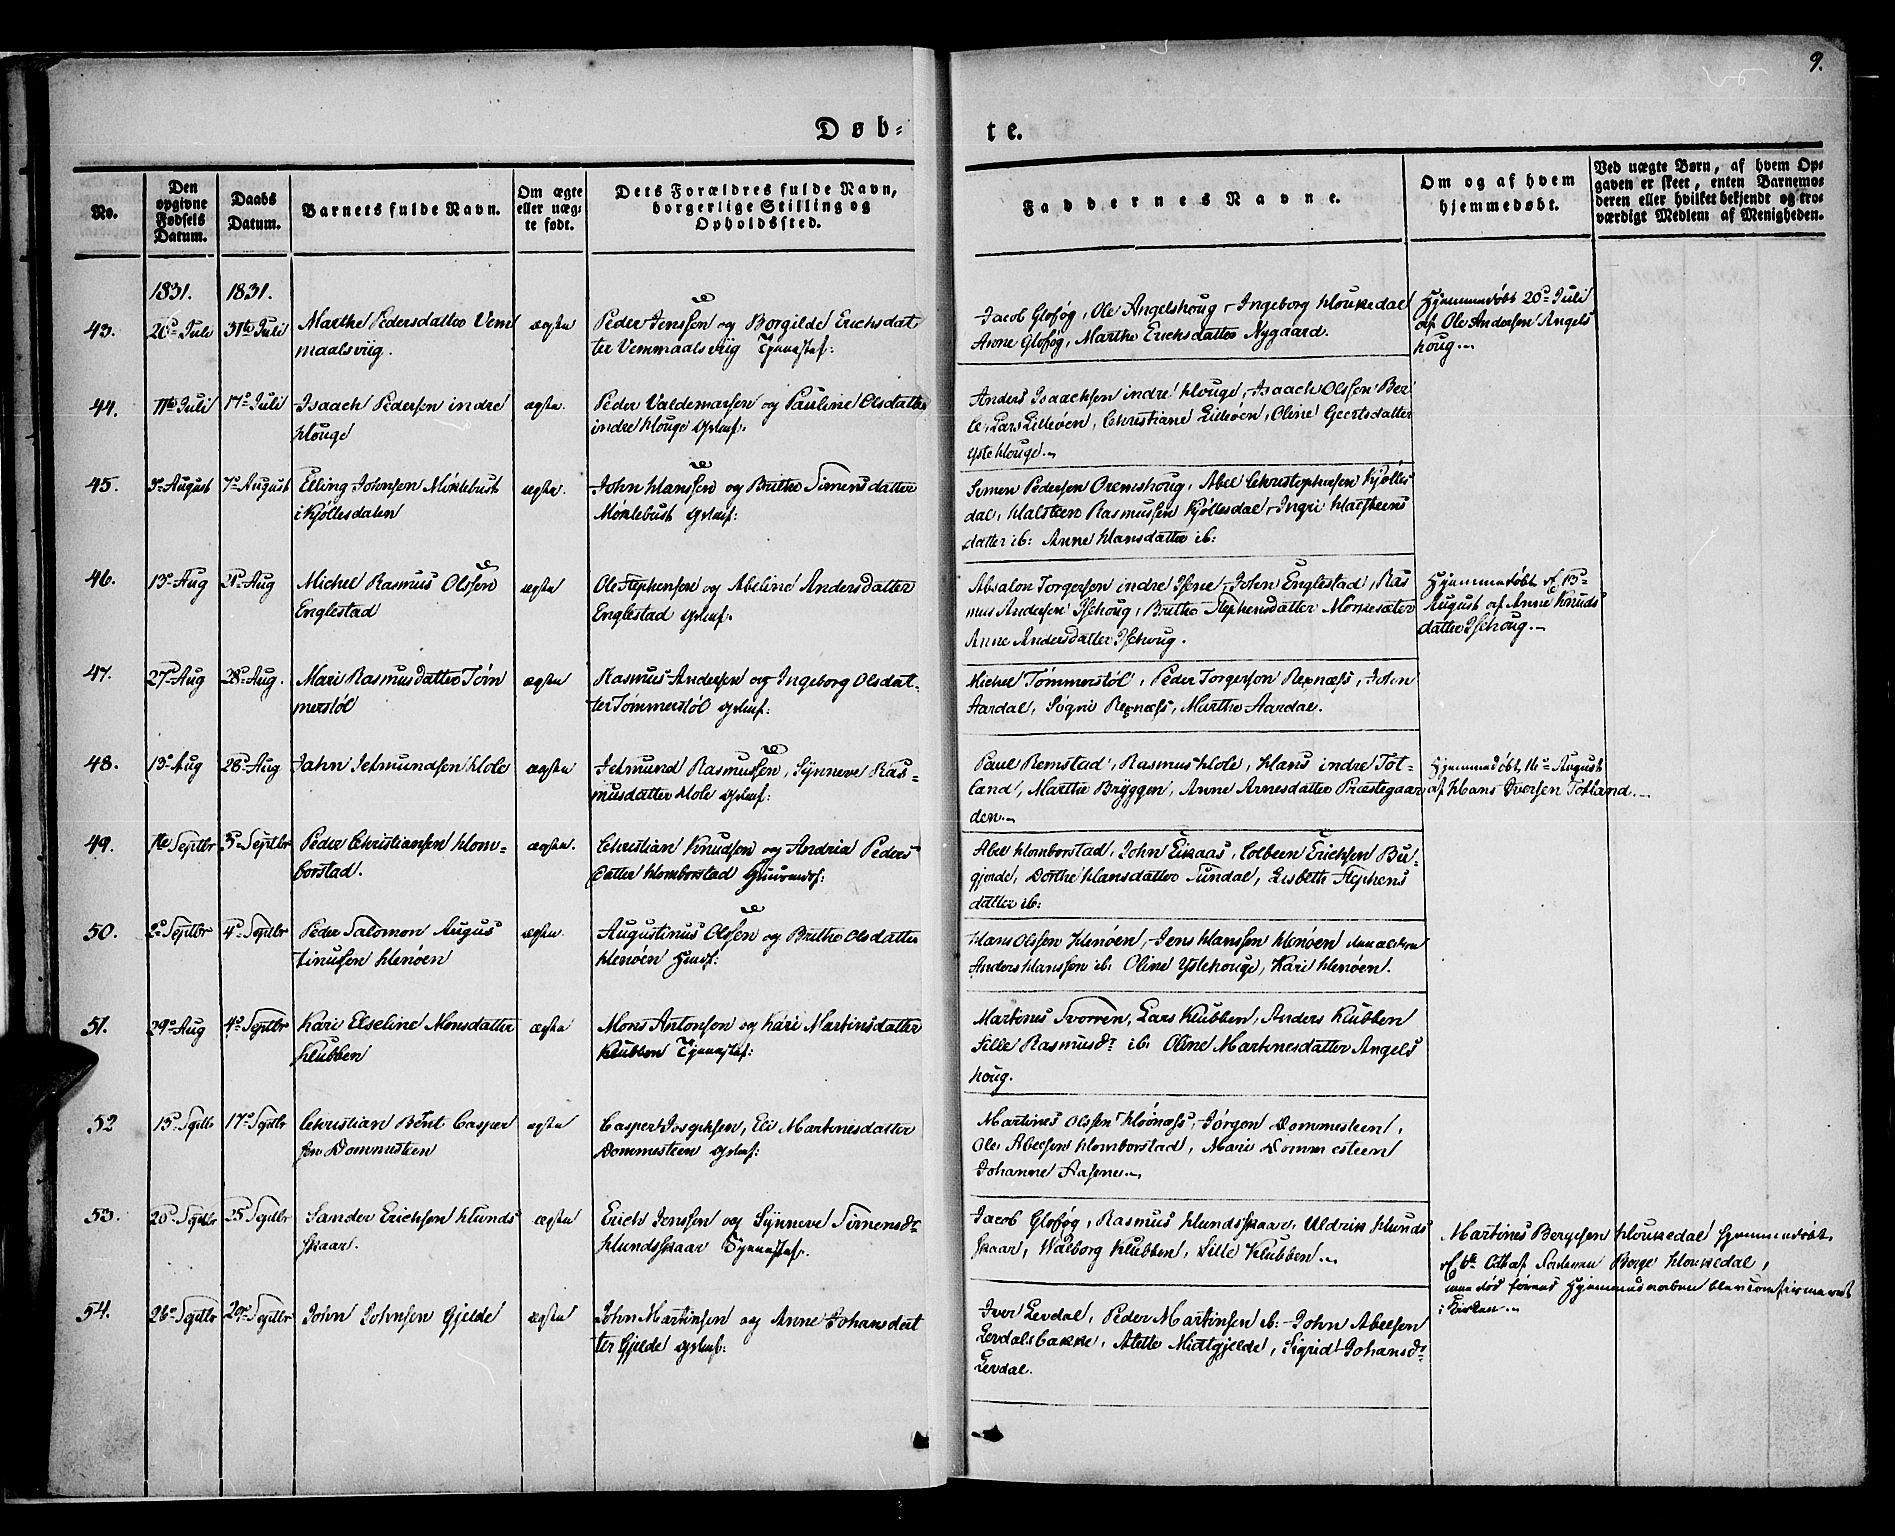 9.
Døb-
te.
No.
Den opgivne Fødsels Datum.
Daabs Datum.
Barnets fulde Navn.
Om ægte eller uægte født.
Dets Forældres fulde Navn, borgerlige Stilling og Opholdssted.
Faddernes Navne.
Om og af hvem hjemmedøbt.
Ved uægte Børn, af hvem Opgaven er skeet, enten Barnemoderen eller hvilket bekjendt og troværdigt Medlem af Menigheden.
1831. 1831.
43. 20de Juli 31te Juli Marthe Pedersdatter Vem
maalsviig.
ægte
Peder Jenssen og Borgilde Erichsdat
ter Vemmaalsviig
Jacob Gloføg, Ole Angelshoug, Ingeborg Houkedal
Anne Gloføg, Marthe Erichsdatter Nygaard.
Hjemmedøbt 20de Juli
af Ole Andersen Angels
houg.
44. 11te Juli 17de Juli Isaach Pedersen indre
Houge
ægte.
Peder Valdemarsen og Pauline Olsdatter
indre Houge
Anders Isaachsen indre Houge, Isaach Olssen Ber
le, Lars Lilleøen, Christiane Lilleøen, Oline Geertsdatter
Ystehouge.
45. 3de August 7de August Elling Johnsen Møklebust
i Kjøllesdalen
ægte.
John Hanssen og Brithe Simensdatter
Møklebust
Simen Pedersen Oremshoug, Abel Christophersen Kjølles
dal, Halsteen Rasmussen Kjøllesdal, Ingri Halsteens
datter ib: Anne Hansdatter ib:
46. 13de Aug 21de Aug Michel Rasmus Olssen
Englestad
ægte
Ole Stephensen og Abeline Andersdatter
Englestad
Absalon Torgersen indre Isene, John Englestad, Ras
mus Andersen Isehoug, Brithe Stephensdatter Mørkesæter
Anne Andersdatter Isehoug.
Hjemmedøbt d. 13de
August af Anne Knuds
datter Isehoug.
47. 27de Aug 28de Aug. Mari Rasmusdatter Tøm
merstøl
ægte
Rasmus Andersen og Ingeborg Olsdat-
ter Tømmerstøl
Michel Tømmerstøl, Peder Torgersen Rexnæss, John
Aardal, Sogni Rexnæss, Marthe Aardal.
48. 13de Aug 28de Aug Jahn Jetmundsen Hole
ægte
Jetmund Rasmussen, Synneve Ras-
musdatter Hole
Paul Remstad, Rasmus Hole, Hans indre Tot-
land, Marthe Bryggen, Anne Arnesdatter Præstegaar
den.
Hjemmedøbt 14de August
af Hans Iversen Totland.
49. 1te Septbr 3de Septbr Peder Christiansen Hom-
borstad.
ægte.
Christian Knudsen og Andria Peders
datter Homborstad
Abel Homborstad, John Eikaas, Colbeen Erichsen Bu-
gjerde, Dorthe Hansdatter Sundal, Lisbeth Stephens
datter ib:
50. 2de Septbr 4de Septbr Peder Salomon Augus
tinussen Henøen
ægte
Augustinus Olssen og Brithe Olsdatter
Henøen
Hans Olssen Henøen, Jens Hanssen Henøen den ældre
Anders Hanssen ib. Oline Ystehouge, Kari Henøen.
51. 29de Aug 4de Septbr Kari Elseline Monsdatter
Klubben
ægte
Mons Antonsen og Kari Martinsdatter
Klubben
Martinus Tvorren, Lars Klubben, Anders Klubben
Sille Rasmusdr ib. Oline Martinesdatter Angels
houg.
52 15de Septbr 17de Septbr Christian Bent Casper
sen Dommesteen
ægte
Casper Josephsen, Eli Martinesdatter
Dommesteen
Martines Olssen Honæss, Jørgen Dommesteen,
Ole Abelsen Homborstad, Mari Dommesteen
Johanne Aasene.
53. 20de Septbr 25de Septbr Sander Erichsen Hunds
skaar.
ægte
Erich Jenssen og Synneve Simensdr
Hundsskaar
Jacob Gloføg, Rasmus Hundsskaar, Uldrik Hunds
skaar, Walborg Klubben, Sille Klubben.
Martines Bergesen Houkedal Hjemmedøbt
af Faderen Berge Houkedal,
men død førend Hjemmedaaben blev confirmeret
i Kirken.
54. 26de Septbr 29de Septbr John Johnsen Gjelde
ægte
John Martinsen og Anne Johansdat
ter Gjelde
Iver Levdal, Peder Martinsen ib: John Abelsen
Levdalsbakke, Alette Midtgjelde, Sigrid Johansdr
Levdal.